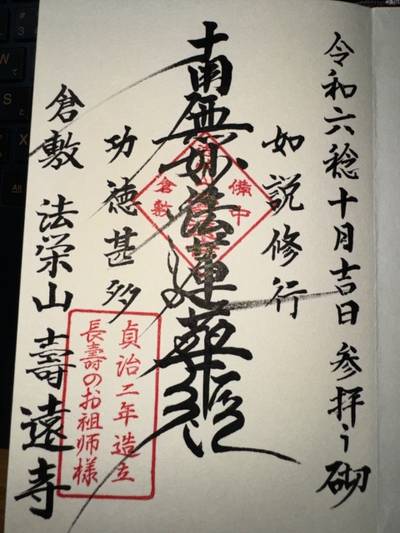 令和六稔十月吉日 参拝之砌
如説修行
南無妙法蓮華経
備中
倉敷
功徳甚多
貞治二年造立
長壽のお祖師様
倉敷 法栄山壽遠寺